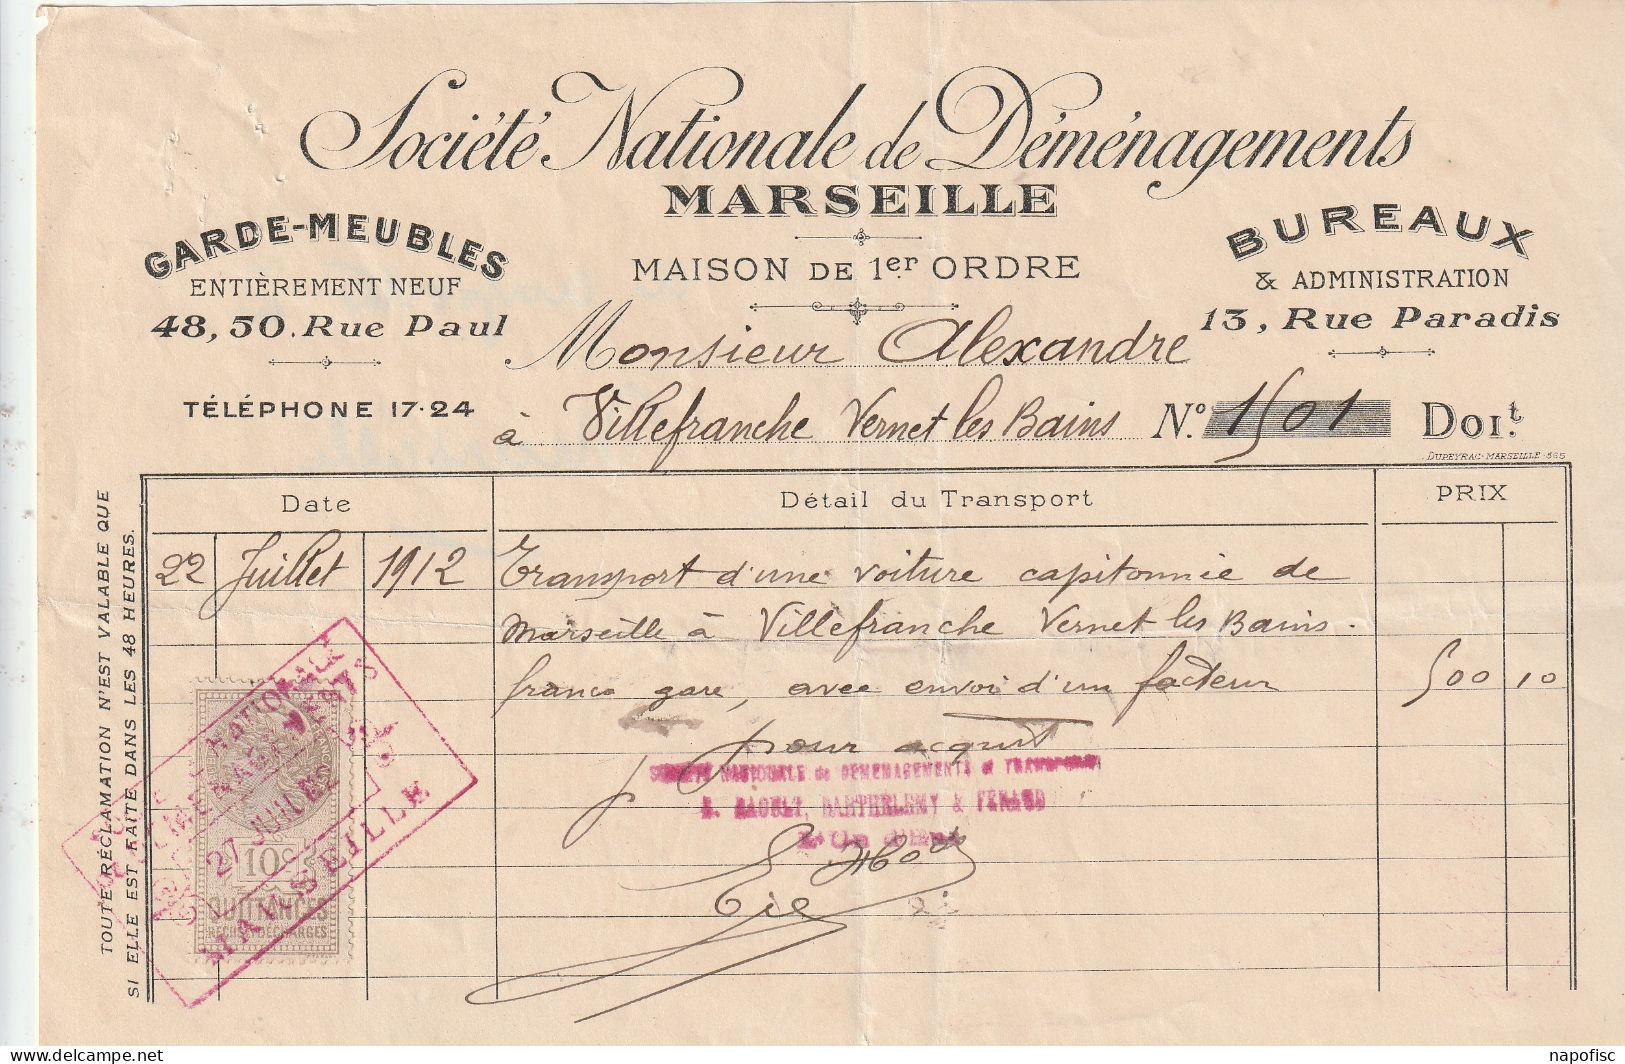 Société Nationale de Déménagements
MARSEILLE
MAISON DE 1er ORDRE
GARDE-MEUBLES
ENTIÈREMENT NEUF
48, 50. Rue Paul
TÉLÉPHONE 17-24
BUREAUX
& ADMINISTRATION
13, Rue Paradis
Monsieur Alexandre
à Villefranche Vernet les Bains N.º 1501 Doi.t
DUPEYRAC-MARSEILLE-865
Date Détail du Transport PRIX
22 Juillet 1912 Transport d'une voiture capitonnie de
Marseille à Villefranche Vernet les Bains.
franco gare, avec envoi d'un facteur 500 10
pour acquit
SOCIÉTÉ NATIONALE de DÉMÉNAGEMENTS et TRANSPORTS
BARTHELEMY &
NATIONALE
27 JUIL
MARSEILLE
10c
QUITTANCES
REÇUS & DÉCHARGES
TOUTE RÉCLAMATION N'EST VALABLE QUE
SI ELLE EST FAITE DANS LES 48 HEURES.
www.delcampe.net
napofisc